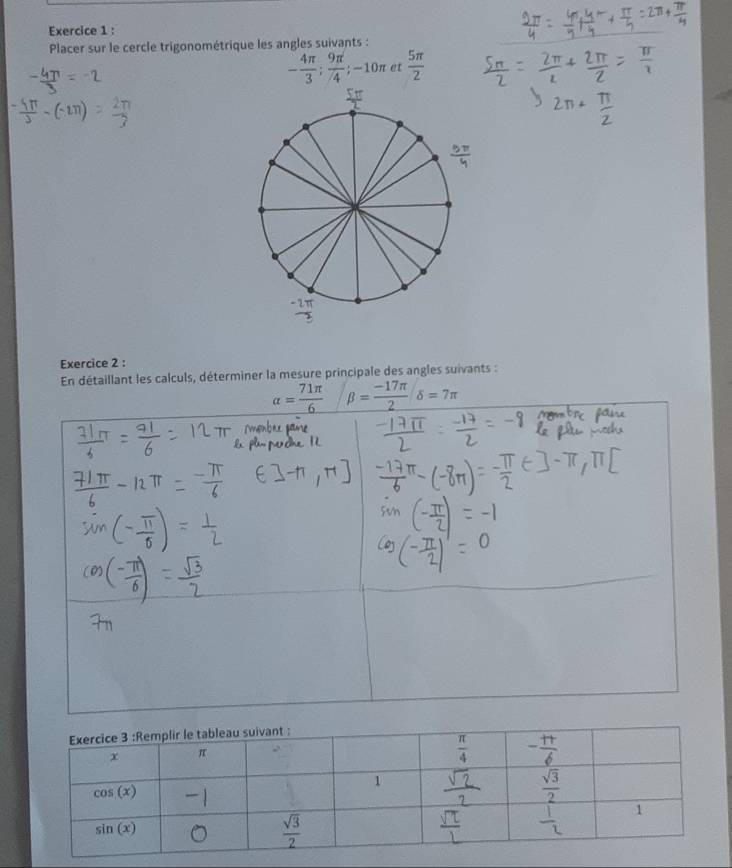 Exercice 1 :
Placer sur le cercle trigonométrique les angles suivants :
-4π/3 ; 9π/4 ; -10π et 5π/2
-4π/3 = -2
-4π/3 - (-2π) = 2π/3
9π/4 = 4π/4 + 4π/4 + π/4 = 2π + π/4
5π/2 = 2π/2 + 2π/2 = π/2
2π + π/2
5π/2
9π/4
-2π/3
Exercice 2 :
En détaillant les calculs, déterminer la mesure principale des angles suivants :
α = 71π/6 β = -17π/2 δ = 7π
71π/6 = 71/6 = 12π nombre paire
le plus proche 12
71π/6 - 12π = -π/6 ∈ ]-π, π]
sin(-π/6) = 1/2
cos(-π/6) = √3/2
-17π/2 = -17/2 = -8 nombre paire
le plus proche
-17π/6 - (-8π) = -π/2 ∈ ]-π, π[
sin(-π/2) = -1
cos(-π/2) = 0
7π
Exercice 3 :Remplir le tableau suivant :
x π π/4 -π/6
cos (x) -1 1 √2/2 √3/2
sin (x) 0 √3/2 √2/2 1/2 1